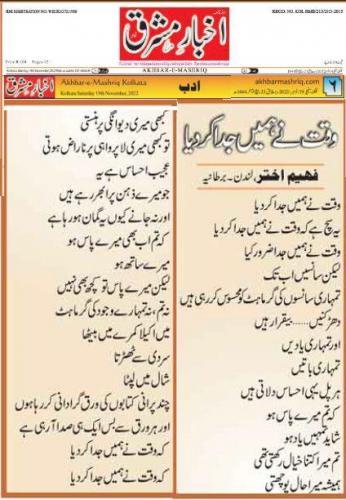 RNI REGISTRATION NO. WBURD/7/1980
REGD. NO. KOL RMS/213/2013-2015
اخبارِ مشرق
AKHBAR-E-MASHRIQ
Akhbar-e-Mashriq Kolkata
Kolkata Saturday 19th November, 2022
ادب
akhbarmashriq.com
۶
اخبار مشرق
وقت نے ہمیں جدا کر دیا
فہیم اختر، لندن۔ برطانیہ
وقت نے ہمیں جدا کر دیا
یہ سچ ہے کہ وقت نے ہمیں جدا کر دیا
وقت نے ہمیں جدا ضرور کیا
لیکن سانسیں اب تک
تمہاری سانسوں کی گرماہٹ کو محسوس کر رہی ہیں
دھڑکنیں......بیقرار ہیں
اور تمہاری یادیں
تمہاری باتیں
ہر پل یہی احساس دلاتی ہیں
کہ تم میرے پاس ہو
شاید تمہیں یاد ہو
تم میرا کتنا خیال رکھتی تھی
ہمیشہ میرا حال پوچھتی
کبھی میری دیوانگی پر ہنستی
تو کبھی میری لا پرواہی پر ناراض ہوتی
عجیب احساس ہے یہ
جو میرے ذہن پر ابھر رہے ہیں
اور نہ جانے کیوں یہ گمان ہو رہا ہے
کہ تم اب بھی میرے پاس ہو
میرے ساتھ ہو
لیکن میرے پاس تو کچھ بھی نہیں
نہ تم، نہ تمہارے وجود کی گرماہٹ
میں اکیلا کمرے میں بیٹھا
سردی سے ٹھٹھرتا
شال میں لپٹا
چند پرانی کتابوں کی ورق گردانی کر رہا ہوں
اور ہر ورق سے بس ایک ہی صدا آرہی ہے
کہ وقت نے ہمیں جدا کر دیا
کہ وقت نے ہمیں جدا کر دیا